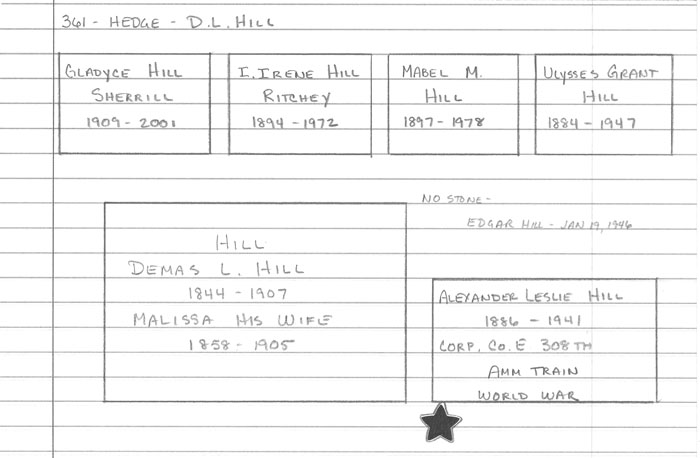 361 - HEDGE - D.L. HILL
GLADYCE HILL
SHERRILL
1909 - 2001
I. IRENE HILL
RITCHEY
1894 - 1972
MABEL M.
HILL
1897 - 1978
ULYSSES GRANT
HILL
1884 - 1947
NO STONE -
EDGAR HILL - JAN 19, 1946
HILL
DEMAS L. HILL
1844 - 1907
MALISSA HIS WIFE
1858 - 1905
ALEXANDER LESLIE HILL
1886 - 1941
CORP. CO. E 308TH
AMM TRAIN
WORLD WAR